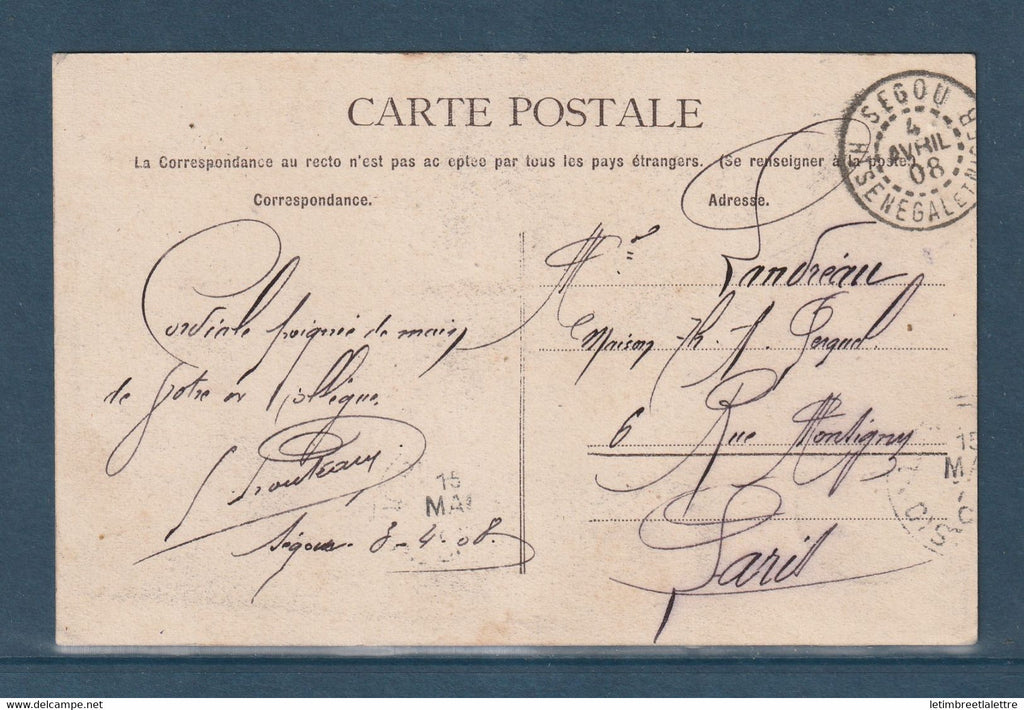 CARTE POSTALE
La Correspondance au recto n'est pas ac eptée par tous les pays étrangers. (Se renseigner à la poste)
Correspondance.
Adresse.
SEGOU
4
AVRIL
08
HT SENEGAL ET NIGER
Cordiale poignée de main
de votre ex Collègue
Ségou 3-4-08.
Landréau
Maison Th.
6 Rue Montigny
Paris
15
MAI
15
MA
delcampe.net
letimbreetlalettre